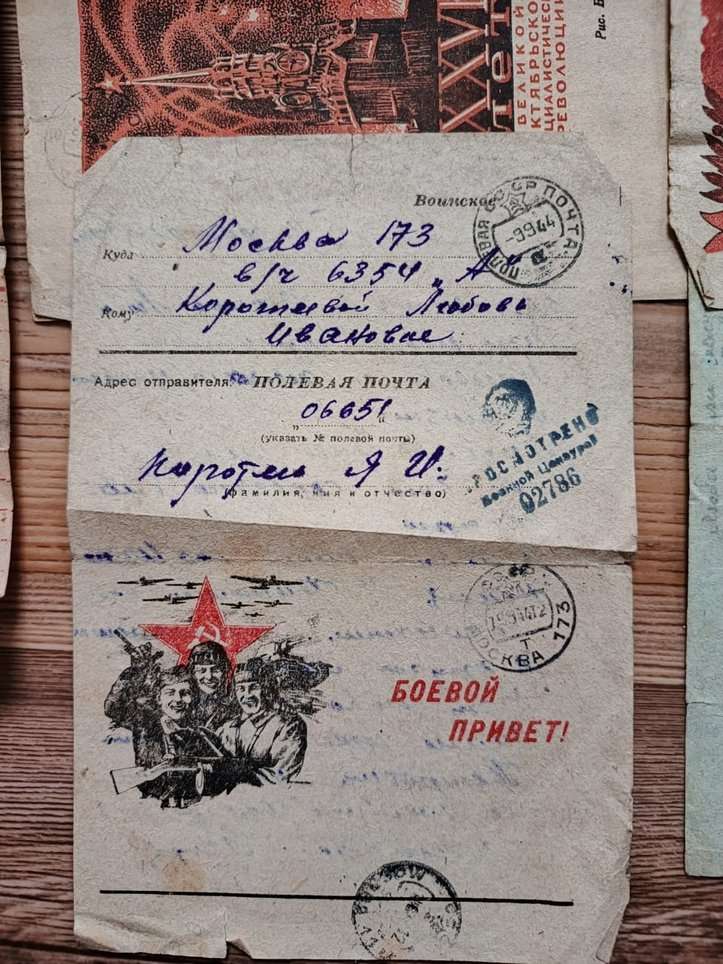 XXVII
лет
ВЕЛИКОЙ
ОКТЯБРЬСКОЙ
СОЦИАЛИСТИЧЕСКОЙ
РЕВОЛЮЦИИ
Рис.
Воинское
ПОЛЕВАЯ ПОЧТА
СССР
-9944
а
Куда Москва 173
в/ч 6354 „А"
Кому Коротаевой Любовь
Ивановне
Адрес отправителя: ПОЛЕВАЯ ПОЧТА
„06651"
(указать № полевой почты)
И. 
(фамилия, имя и отчество)
ПРОСМОТРЕНО
Военной Цензурой
02786
МОСКВА 173
Т
БОЕВОЙ
ПРИВЕТ!
MOSCOW